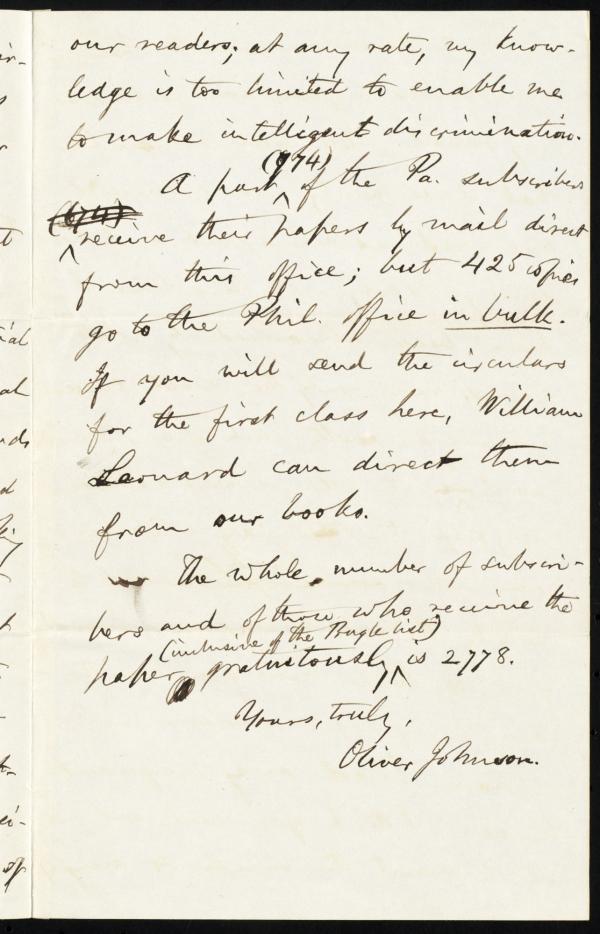 our readers; at any rate, my know-
ledge is too limited to enable me
to make intelligent discrimination.
(974)
A part of the Pa. subscribers
(674)
receive their papers by mail direct
from this office; but 425 copies
go to the Phil. office in bulk.
If you will send the circulars
for the first class here, William
Leonard can direct them
from our books.
The whole number of subscri-
bers and of those who receive the
(inclusive of the Bugle list)
paper gratuitously is 2778.
Yours, truly,
Oliver Johnson.